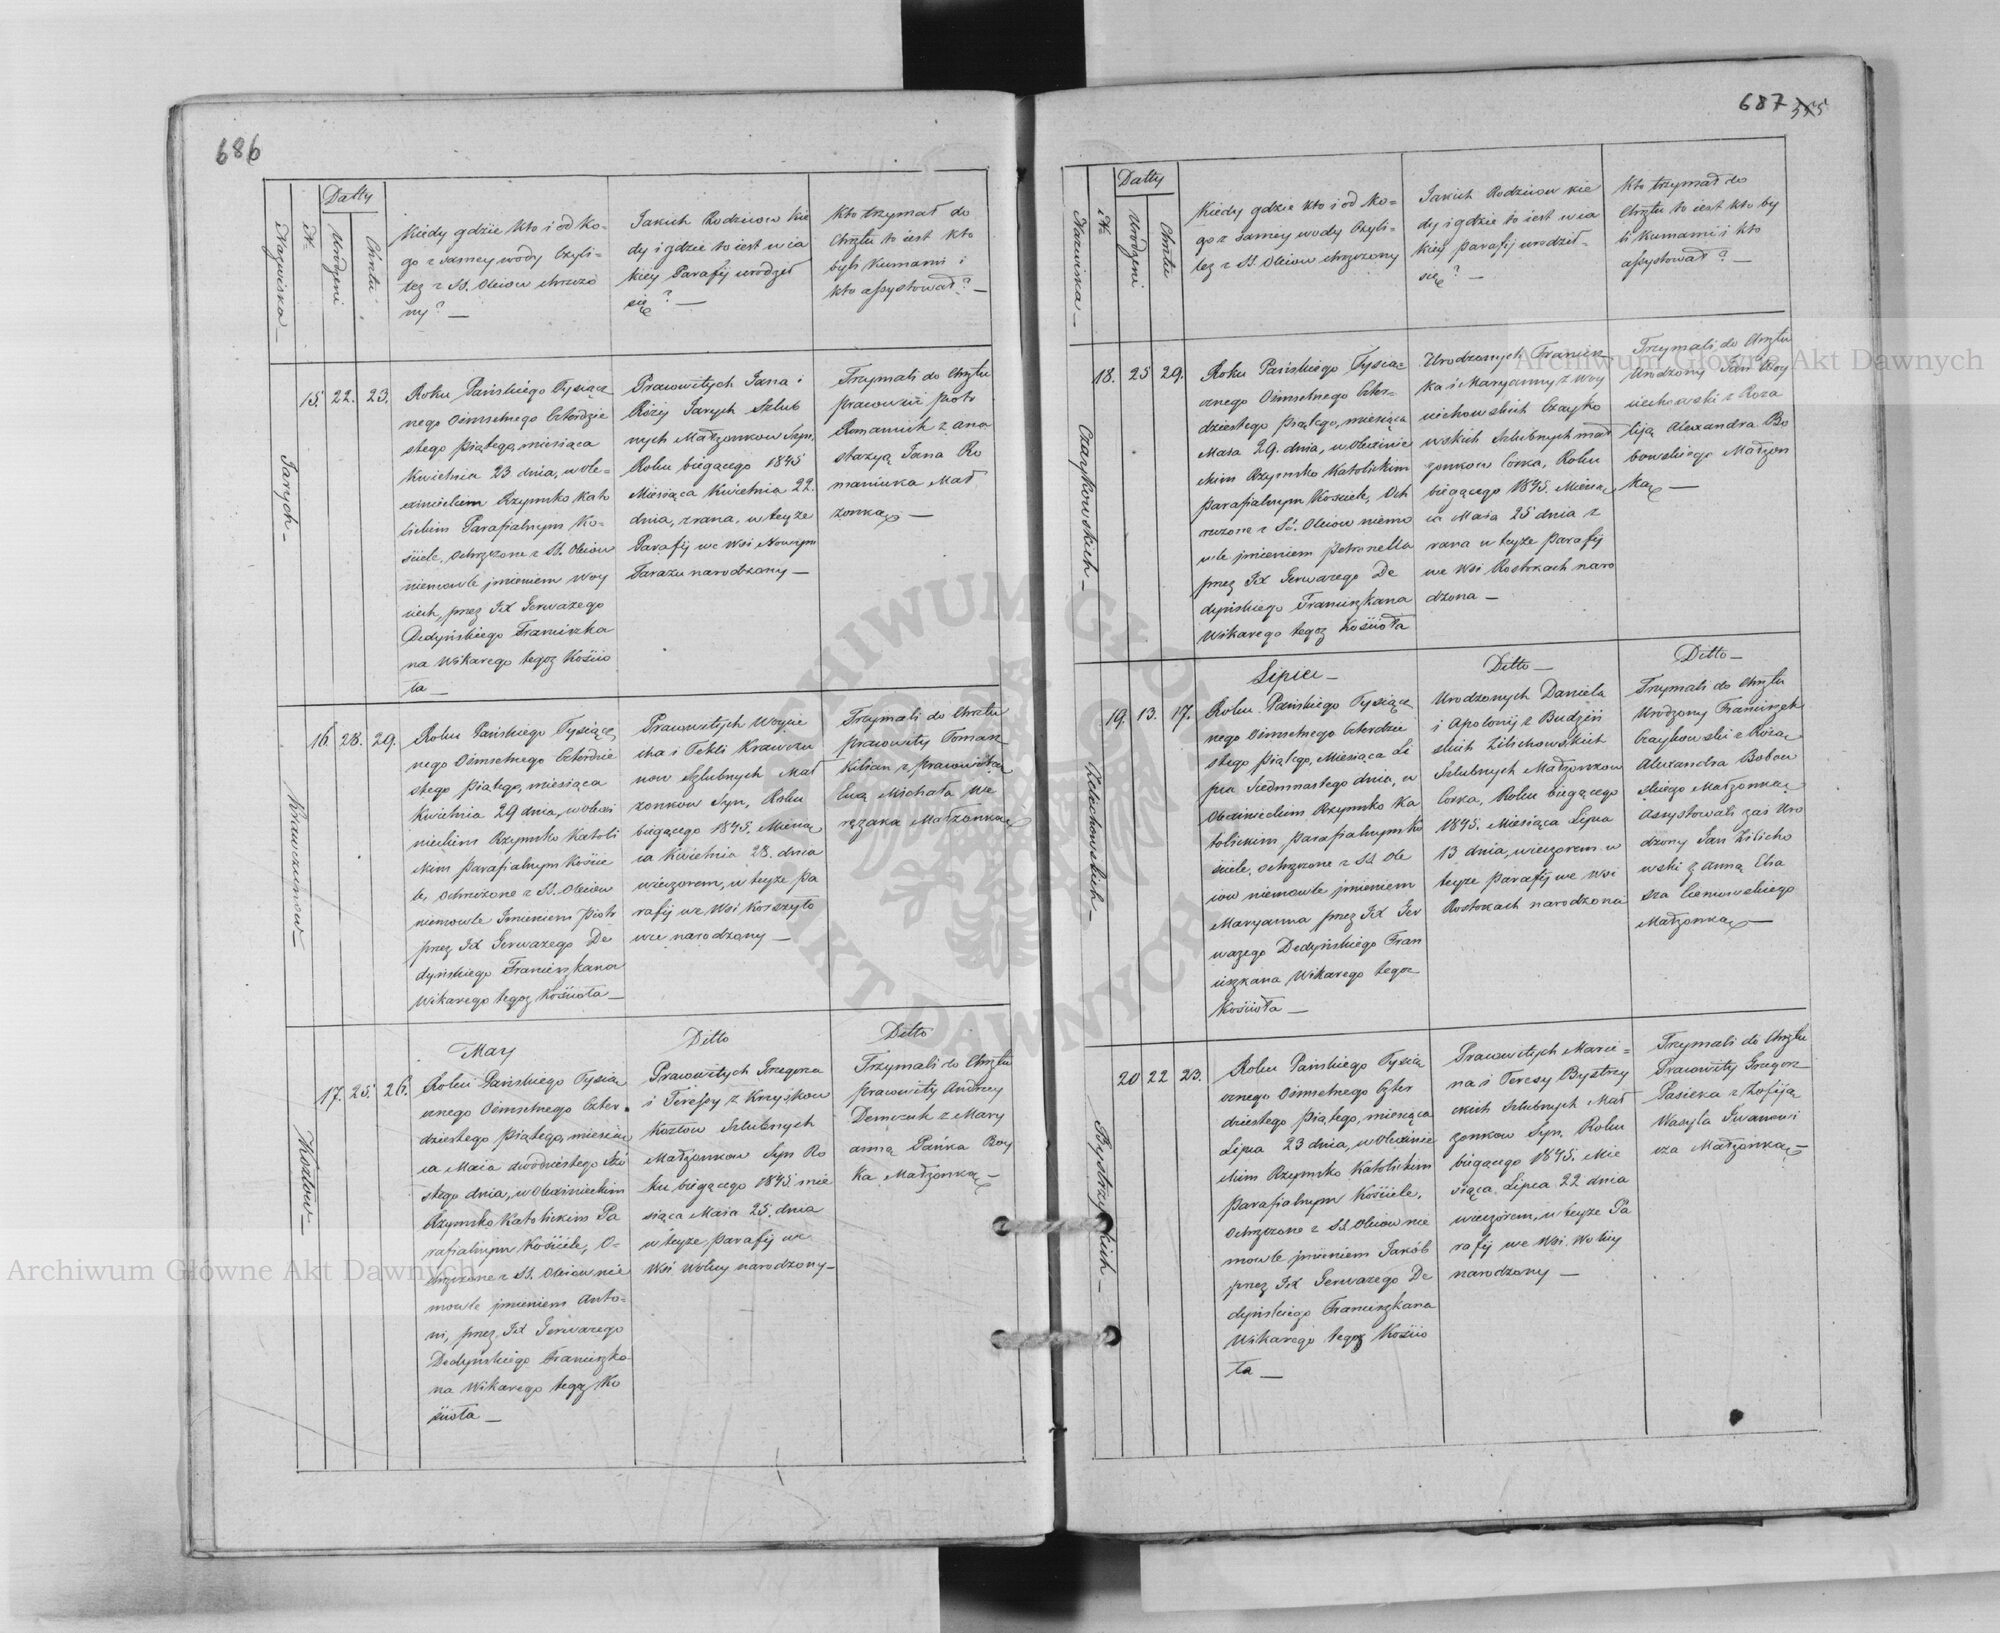 686
Nazwiska —
N.
Datty
Urodzeni
Chrztu
Kiedy gdzie kto i od ko-
go z samey wody Czyli-
tez z SS. Oleiow chrzczo
ny? —
Jakich Rodzicow kie
dy i gdzie to iest w ia
kiey Parafij urodził
się? —
Kto trzymał do
Chrztu to iest kto
byli Kumami i
kto assystował? —
Jarych —
15. 22. 23.
Roku Pańskiego Tysiącz
nego Ośmsetnego Czterdzie
stego Piątego, miesiąca
Kwietnia 23 dnia, w Ole-
xinieckim Rzymsko Kato
lickim Parafialnym Ko-
ściele, ochrzczone z SS. Oleiow
niemowle jmieniem Woy
ciech, przez JX Gerwazego
Dedyńskiego Franciszka
na Wikarego tegoz Kościo
ła —
Prawowitych Jana i
Róży Jarych Szlub
nych Małżonkow Syn,
Roku biegącego 1845
Miesiąca Kwietnia 22.
dnia, z rana, w teyże
Parafij we Wsi Nowym
Tarażu narodzony —
Trzymali do Chrztu
prawowici Piotr
Romaniuk z Ana
stazyą Jana Ro
maniuka Mał
żonką —
Krawczunow —
16. 28. 29.
Roku Pańskiego Tysiącz
nego Ośmsetnego Czterdzie
stego Piątego, miesiąca
Kwietnia 29 dnia, w Olexi
nieckim Rzymsko Katoli
ckim Parafialnym Koście
le, ochrzczone z SS. Oleiow
niemowle Jmieniem Piotr
przez JX Gerwazego De
dyńskiego Franciszkana
Wikarego tegoz Kościoła —
Prawowitych Woycie
cha i Tekli Krawczu
now Szlubnych Mał
żonkow Syn, Roku
biegącego 1845. Miesią
ca Kwietnia 28. dnia
wieczorem, w teyże Pa
rafij we Wsi Korszyło
wce narodzony —
Trzymali do Chrztu
prawowity Tomasz
Kilian z prawowitą
Ewą Michała We
ręzaka Małżonką
Kozłow —
17. 25. 26.
May
Roku Pańskiego Tysią
cznego Ośmsetnego Czter
dziestego Piątego, miesią
ca Maia dwódziestego Szó
stego dnia, w Olexinieckim
Rzymsko Katolickim Pa
rafialnym Kościele, O-
chrzczone z SS. Oleiow nie
mowle jmieniem Anto-
ni, przez JX Gerwazego
Dedyńskiego Franciszka-
na Wikarego tegoz Ko
ścioła —
Ditto
Prawowitych Grzegorza
i Teressy z Krzyśkow
Kozłow Szlubnych
Małżonkow Syn Ro
ku biegącego 1845 mie
siąca Maia 25. dnia
w teyże Parafij we
Wsi Wolicy narodzony —
Ditto
Trzymali do Chrztu
prawowity Andrzey
Demczuk z Mary
anną Pańka Boy
ka Małżonką —
687 345
Nazwiska —
N.
Datty
Urodzeni
Chrztu
Kiedy gdzie kto i od ko-
go z samey wody Czyli-
tez z SS. Oleiow chrzczony
Jakich Rodzicow kie
dy i gdzie to iest w ia
kiey parafij urodził-
się? —
Kto trzymał do
Chrztu to iest kto by
li Kumami i kto
assystował? —
Czaykowskich —
18. 25 29.
Roku Pańskiego Tysią-
cznego Ośmsetnego Czter-
dziestego Piątego, miesiąca
Maia 29. dnia, w Olexinie
ckim Rzymsko Katolickim
Parafialnym Kościele, Och
rzczone z SS. Oleiow niemo
wle jmieniem Petronella
przez JX Gerwazego De
dyńskiego Franciszkana
Wikarego tegoz Kościoła
Urodzonych Francisz
ka i Maryanny z Woy
ciechowskich Czayko
wskich Szlubnych mał
żonkow Corka, Roku
biegącego 1845. Miesią
ca Maia 25 dnia z
rana w teyże Parafij
we Wsi Rostokach naro
dzona —
Trzymali do Chrztu
Urodzony Jan Woy
ciechowski z Roza
lią Alexandra Bo
bowskiego Małżon
ką —
Zelechowskich —
19. 13. 17.
Lipiec —
Roku Pańskiego Tysiącz
nego Ośmsetnego Czterdzie
stego Piątego, Miesiąca Li
pca Siedmnastego dnia, w
Olexinieckim Rzymsko Ka
tolickim Parafialnym Ko
ściele, ochrzczone z SS. Ole
iow niemowle jmieniem
Maryanna przez JX Ger
wazego Dedyńskiego Fran
ciszkana Wikarego tegoz
Kościoła —
Ditto —
Urodzonych Daniela
i Apolonij z Budziń
skich Zilichowskich
Szlubnych Małżonkow
Corka, Roku biegącego
1845. Miesiąca Lipca
13 dnia, wieczorem w
teyze Parafij we Wsi
Rostokach narodzona
Ditto —
Trzymali do Chrztu
Urodzony Franciszek
Czaykowski z Rozą
Alexandra Bobow
skiego Małżonką
Assystowali zaś Uro
dzony Jan Zilicho
wski z Anną Elia
sza Cieniewskiego
Małżonką —
Bystrzyckich —
20 22 23.
Roku Pańskiego Tysią
cznego Ośmsetnego Czter
dziestego Piątego, miesiąca
Lipca 23 dnia, w Olexinie
ckim Rzymsko Katolickim
Parafialnym Kościele,
Ochrzczone z SS. Oleiow nie
mowle jmieniem Jakób
przez JX Gerwazego De
dyńskiego Franciszkana
Wikarego tegoz Kościo
ła —
Prawowitych Marci-
na i Teresy Bystrzy
ckich Szlubnych Mał
żonkow Syn. Roku
biegącego 1845. Mie
siąca Lipca 22 dnia
wieczorem, w teyze Pa
rafij we Wsi Wolicy
narodzony —
Trzymali do Chrztu
Prawowity Grzegorz
Pasieka z Zofiją
Wasyla Iwanowi
cza Małżonką —
Archiwum Główne Akt Dawnych
Archiwum Główne Akt Dawnych
ARCHIWUM GŁÓWNE
AKT DAWNYCH